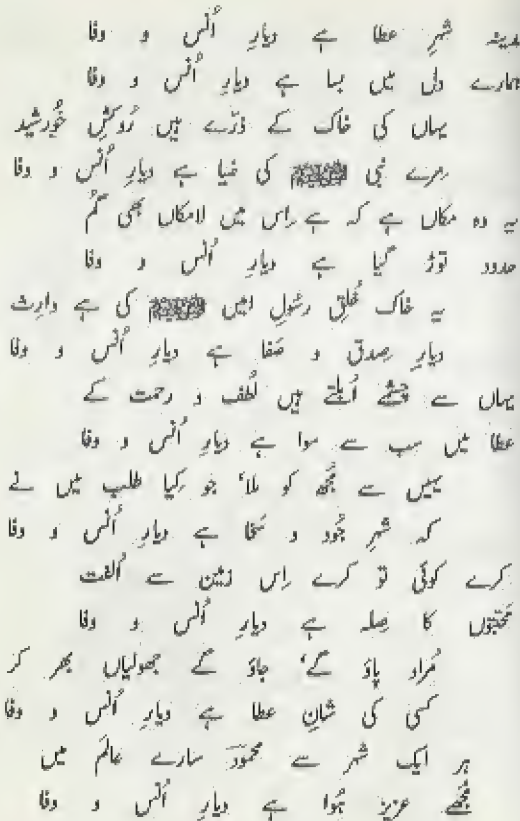 مدینہ شہرِ عطا ہے دیارِ اُنس و وفا
ہمارے دل میں بسا ہے دیارِ اُنس و وفا
یہاں کی خاک کے ذرّے ہیں رُوکشِ خُورشید
مِرے نبی ﷺ کی ضیا ہے دیارِ اُنس و وفا
یہ وہ مکاں ہے کہ ہے اِس میں لامکاں بھی گُم
حدود توڑ گیا ہے دیارِ اُنس و وفا
یہ خاک خُلقِ رسُولِ امیں ﷺ کی ہے وارِث
دیارِ صِدق و صَفا ہے دیارِ اُنس و وفا
یہاں سے چشمے اُبلتے ہیں لُطف و رحمت کے
عطا میں سب سے سوا ہے دیارِ اُنس و وفا
یہیں سے مُجھ کو مِلا، جو کِیا طلب میں نے
کہ شہرِ جُود و سَخا ہے دیارِ اُنس و وفا
کرے کوئی تو کرے اِس زمین سے اُلفت
مَحبّتوں کا صِلہ ہے دیارِ اُنس و وفا
مُراد پاؤ گے، جاؤ گے جھولیاں بھر کر
کسی کی شانِ عطا ہے دیارِ اُنس و وفا
ہر ایک شہر سے محمودؔ سارے عالَم میں
مُجھے عزیز ہُوا ہے دیارِ اُنس و وفا